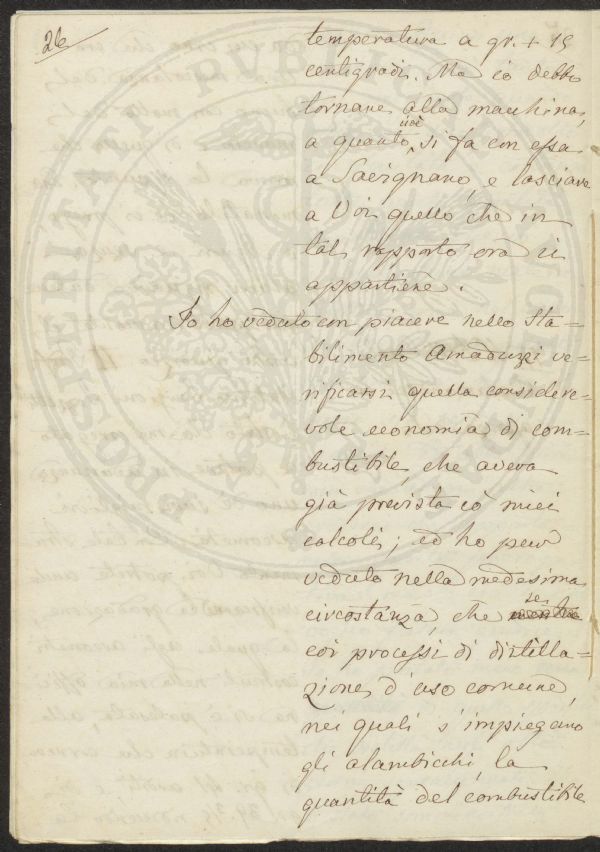 26
temperatura a gr. + 15
centigradi. Ma io debbo
tornare alla macchina,
cioè
a quanto si fa con essa
a Savignano, e lasciare
a Voi quello, che in
tal rapporto ora vi
appartiene.
Io ho veduto con piacere nello sta-
bilimento Amaduzzi ve-
rificarsi quella considere-
vole economia di com-
bustibile, che aveva
già prevista co' miei
calcoli; ed ho pur
veduto nella medesima
se
circostanza, che
coi processi di distilla-
zione d'uso comune,
nei quali s'impiegano
gli alambicchi, la
quantità del combustibile
PROSPERITATI PUBLICAE AUGENDAE